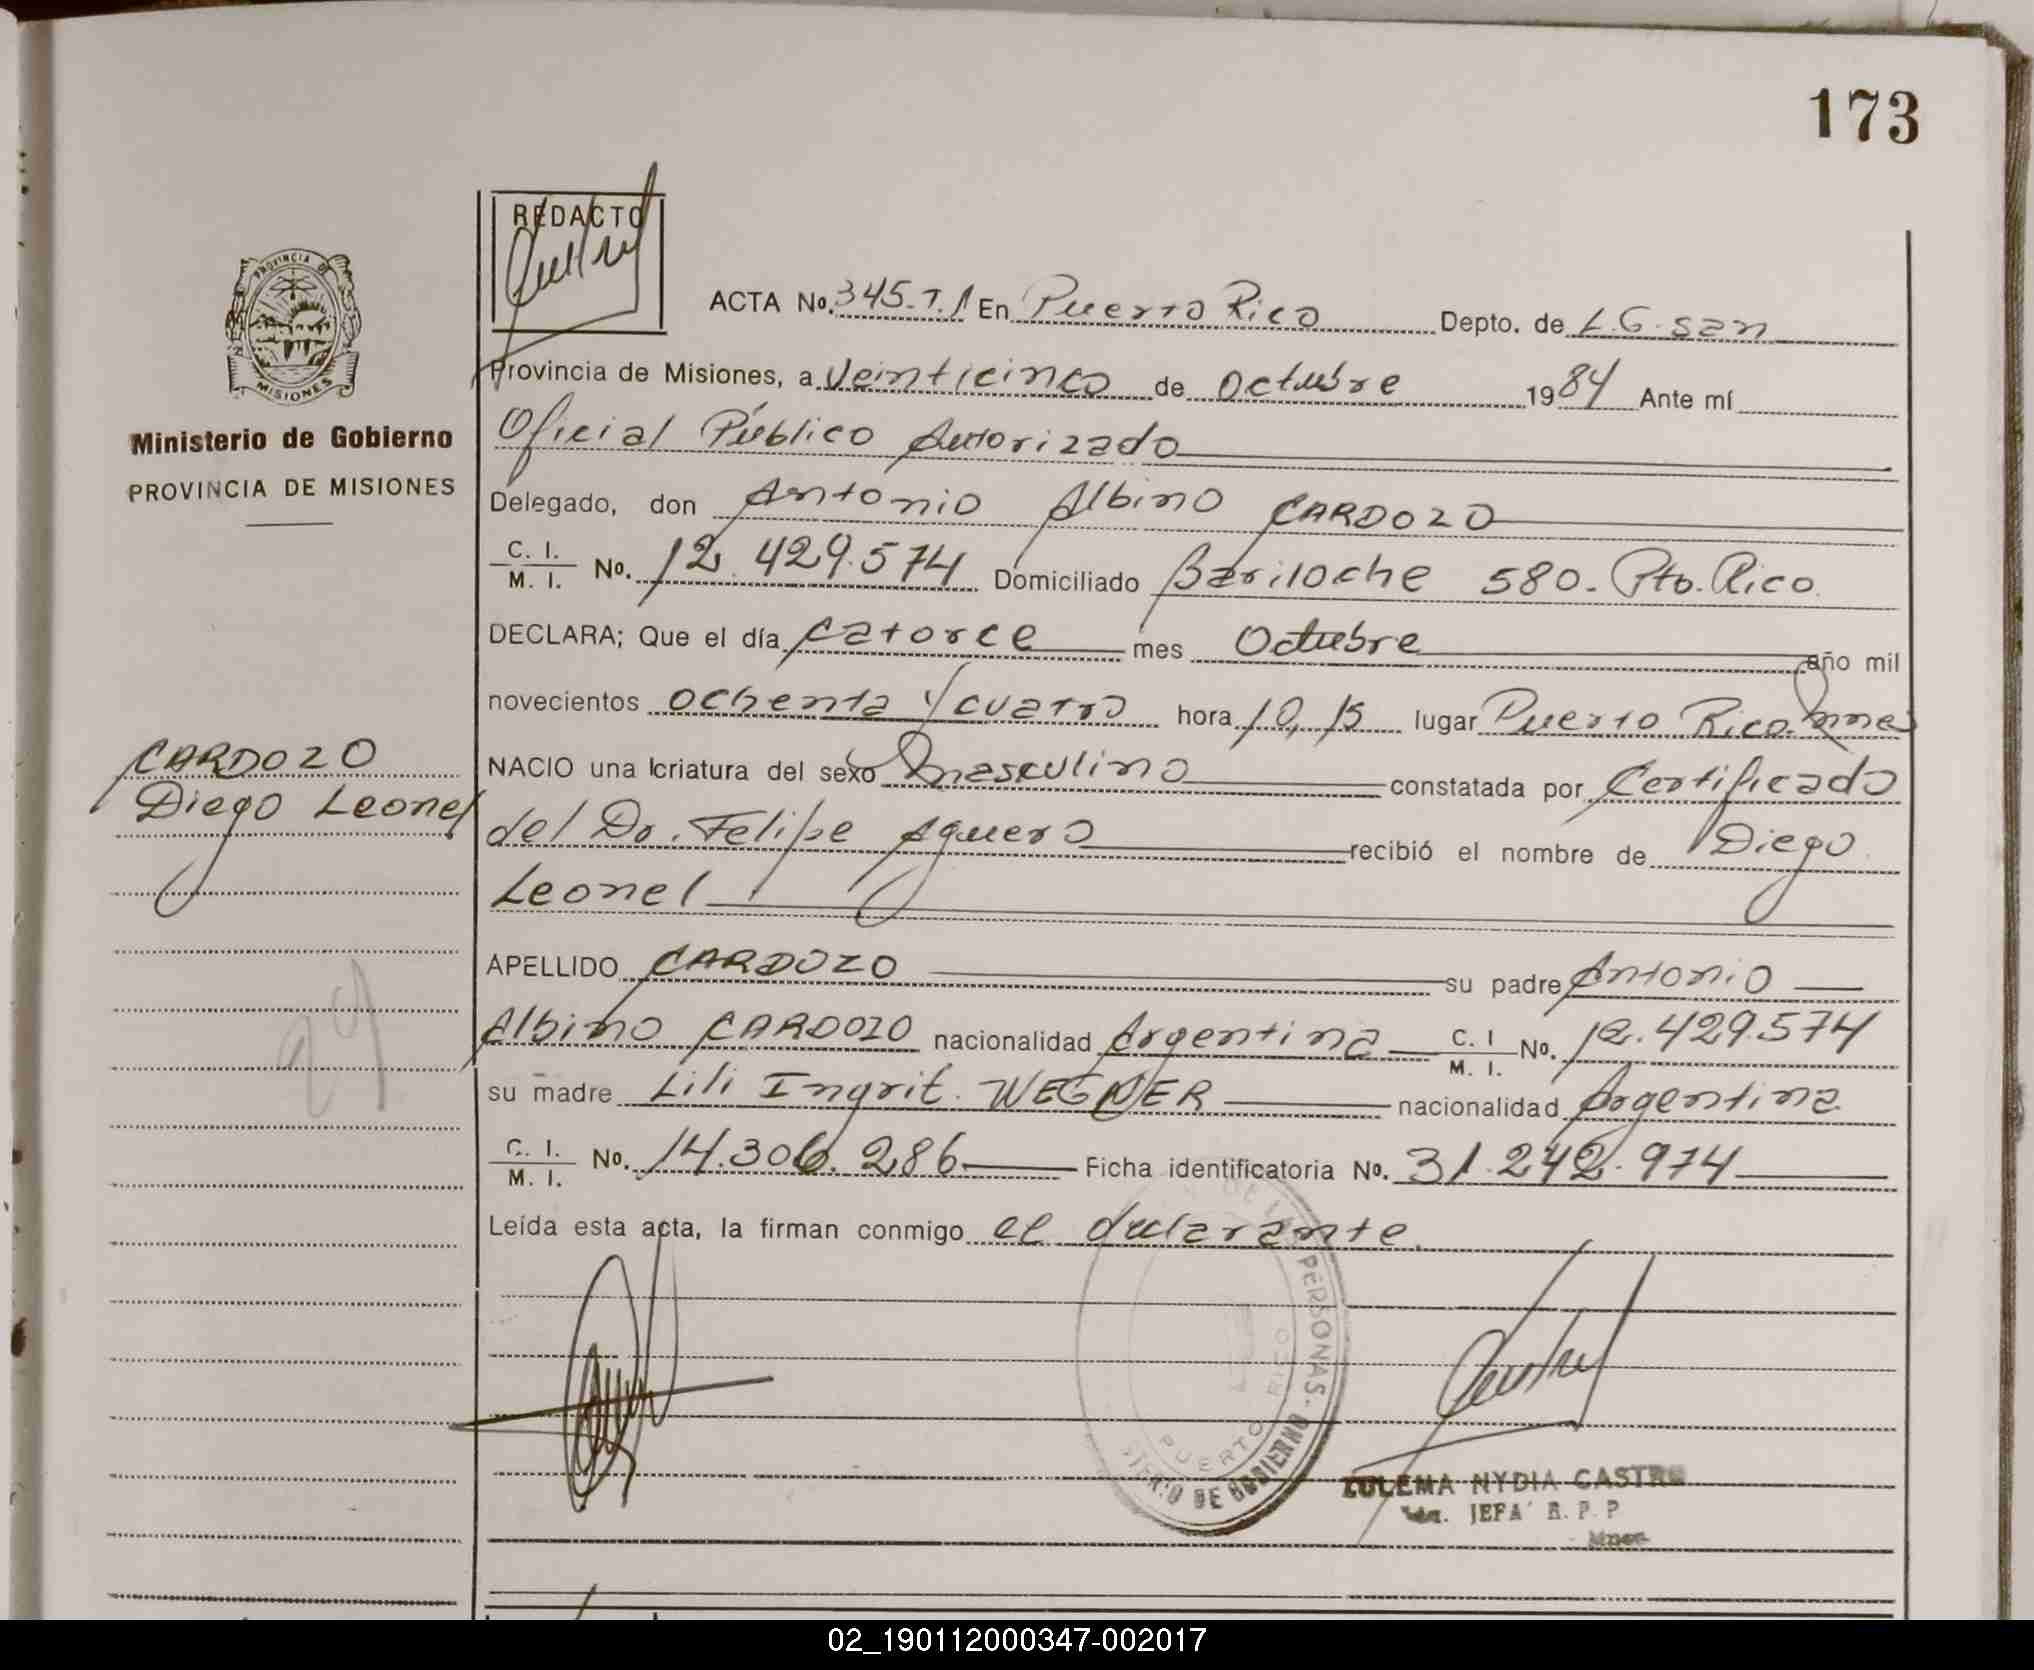 173
REDACTO
PROVINCIA DE
MISIONES
ACTA No. 345.T.1 En Puerto Rico Depto. de L.G.San
Provincia de Misiones, a veinticinco de octubre 1984 Ante mí
Ministerio de Gobierno
PROVINCIA DE MISIONES
Oficial Público Autorizado
Delegado, don Antonio Albino CARDOZO
C. I.
M. I. No. 12.429.574 Domiciliado Bariloche 580. Pto. Rico.
DECLARA; Que el día catorce mes Octubre año mil
novecientos ochenta y cuatro hora 10,15 lugar Puerto Rico. Mnes
CARDOZO
Diego Leonel
NACIO una criatura del sexo masculino constatada por Certificado
del Dr. Felipe Aguero recibió el nombre de Diego
Leonel
APELLIDO CARDOZO su padre Antonio
Albino CARDOZO nacionalidad Argentina C. I
M. I. No. 12.429.574
su madre Lili Ingrit. WEGNER nacionalidad Argentina
C. I.
M. I. No. 14.306.286 Ficha identificatoria No. 31.242.974
Leída esta acta, la firman conmigo el declarante.
PERSONAS
DE GOBIERNO
PUERTO RICO
ZULEMA NYDIA CASTRO
JEFA R. P. P
Mnes
02_190112000347-002017